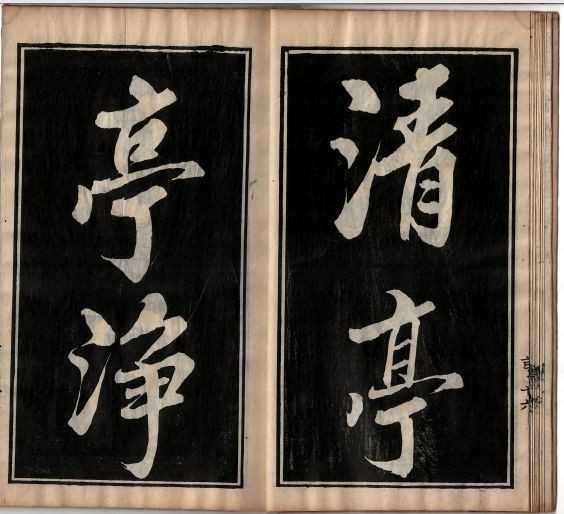 清亭
亭淨